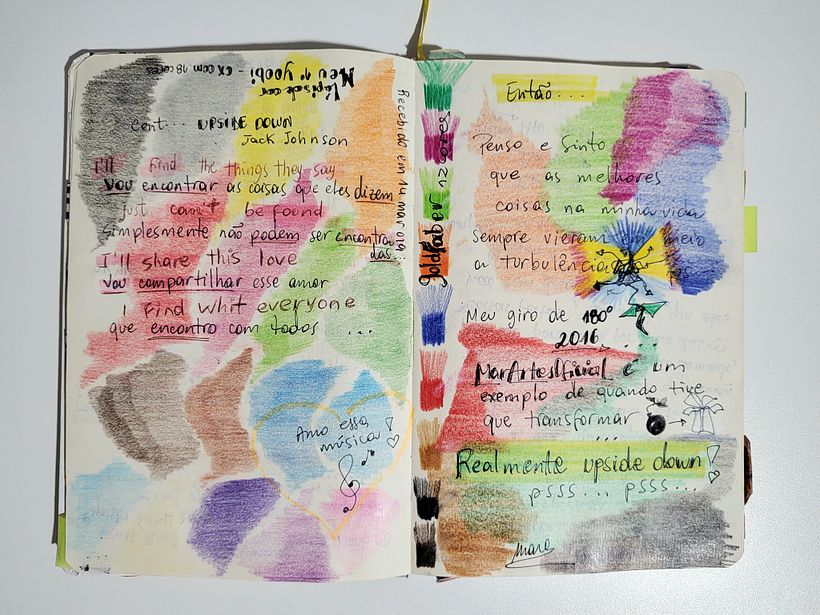 Meu 1º yoobi - cx com 18 cores
lápis de cor
Cent... UPSIDE DOWN
Jack Johnson
I'll find the things they say
Vou encontrar as coisas que eles dizem
just can't be found
Simplesmente não podem ser encontra
das...
I'll share this love
Vou compartilhar esse amor
I find whit everyone
que encontro com todos ...
Amo essa
música!
Recebido em 14 mar 019
goldfaber 12 cores
Então...
Penso e sinto
que as melhores
coisas na minha vida
sempre vieram em meio
a turbulências
Meu giro de 180°
2016...
MarArtesOficial é um
exemplo de quando tive
que transformar
...
Realmente upside down!
psss... psss...
Mara